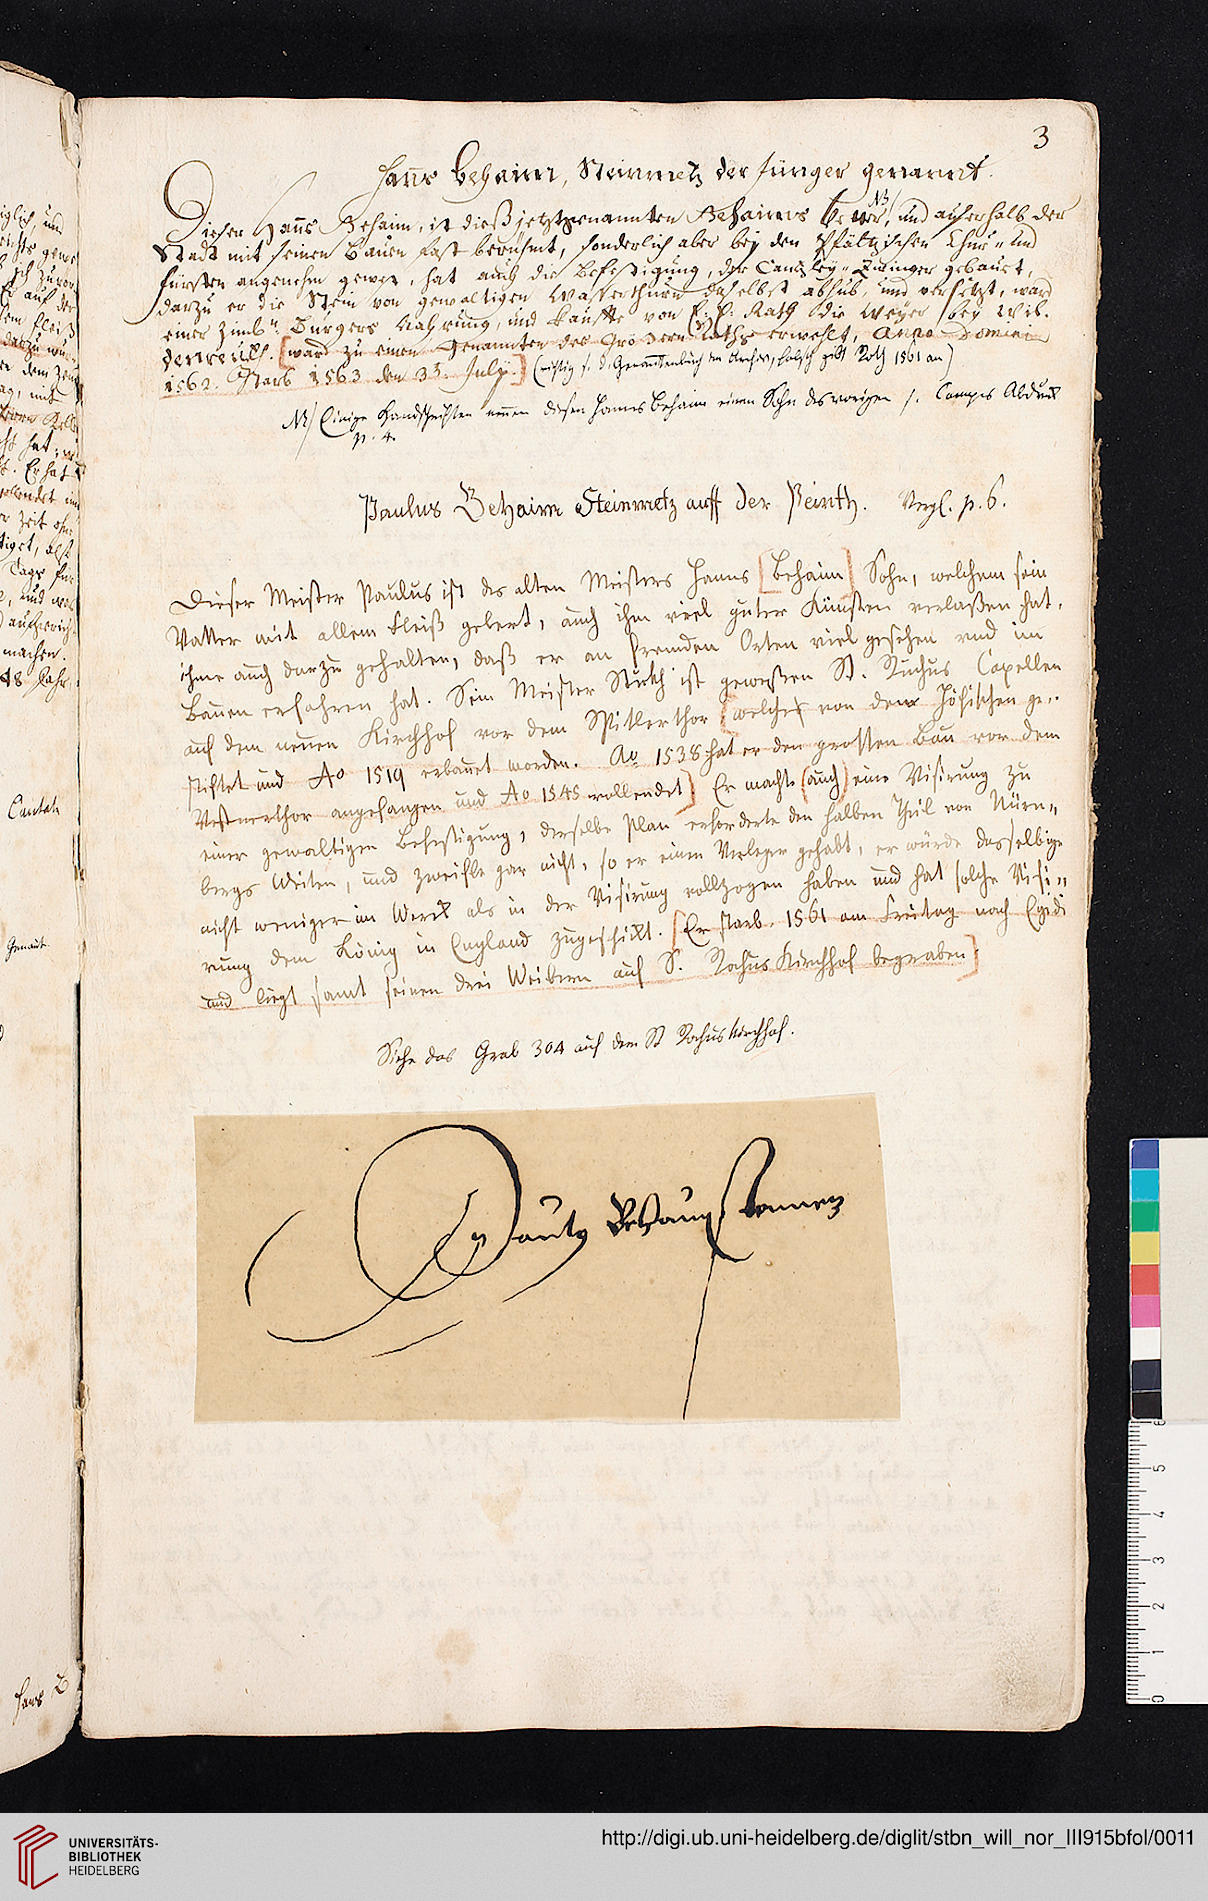 3
Hanns Behaim, Steinmetz der Jünger genannt.
Dieser Hanns Behaim, ist dieß jetztgenannten Behaims Vetter, und außerhalb der
NB
Stadt mit seinen Bauen fast berühmt, sonderlich aber bey den Pfältzischen Chur- und
Fürsten angenehm gewest, hat auch die Befestigung, der Cantzley-Zwinger gebauet,
darzu er die Stein von gewaltigen Wasserthurn daselbst abhub, und versetzt, ward
einer zimb. Bürgers Nahrung, und kauffte von E: E: Rath die Weyer bey Wil-
denreuth. [ward zu einen Genannten des Grössern Raths erwehlt, Anno Domini
1562. Starb 1563 den 33. July.] (richtig s. d. Genanntenbuch im Archiv, falsch gibt Roth 1561 an)
NB) Einige Handschriften nennen diesen Hannes Behaim einen Sohn des vorigen s. Campes Abdruck
p. 4.
Paulus Behaim Steinmetz auff der Peinth. Vergl. p. 6.
Dieser Meister Paulus ist des alten Meisters Hanns [Behaim] Sohn, welchem sein
Vatter mit allem Fleiß gelert, auch ihm viel guter Künsten verlaßen hat,
ihme auch darzu gehalten, daß er an fremden Orten viel gesehen und im
Bauen erfahren hat. Sein Meister Stuckh ist gewesen St. Ruchus Capellen
auf dem neuen Kirchhof vor dem Spitlerthor [welches von dem Jhöfischen ge-
stifftet und Ao 1519 erbauet worden. Ao 1538 hat er den grossen Bau vor dem
Vestnerthor angefangen und Ao 1545 vollendet] Er machte (auch) eine Visirung zu
einer gewaltigen Befestigung, derselbe Plan erforderte den halben Theil von Nürn-
bergs Weiten, und zweifle gar nicht, so er einen Verleger gehabt, er würde dasselbige
nicht weniger im Werck als in der Visirung vollzogen haben und hat solche Visi-
rung dem König in England zugeschickt. [Er starb 1561 am Freitag nach Egidi
und liegt samt seinen drei Weibern auf S. Rochus Kirchhof begraben]
Siehe das Grab 304 auf dem St Rochuskirchhof.
Paulus Behaim Steinmetz
iglich, und
auf der
Fleiß
dem
mit
hat,
Er hat
vollendet
Zeit
Tage
und
machen.
48 Jahr
Cantzl
Genant
Hans B
6
5
4
3
2
1
0
UNIVERSITÄTS-
BIBLIOTHEK
HEIDELBERG
http://digi.ub.uni-heidelberg.de/diglit/stbn_will_nor_III915bfol/0011